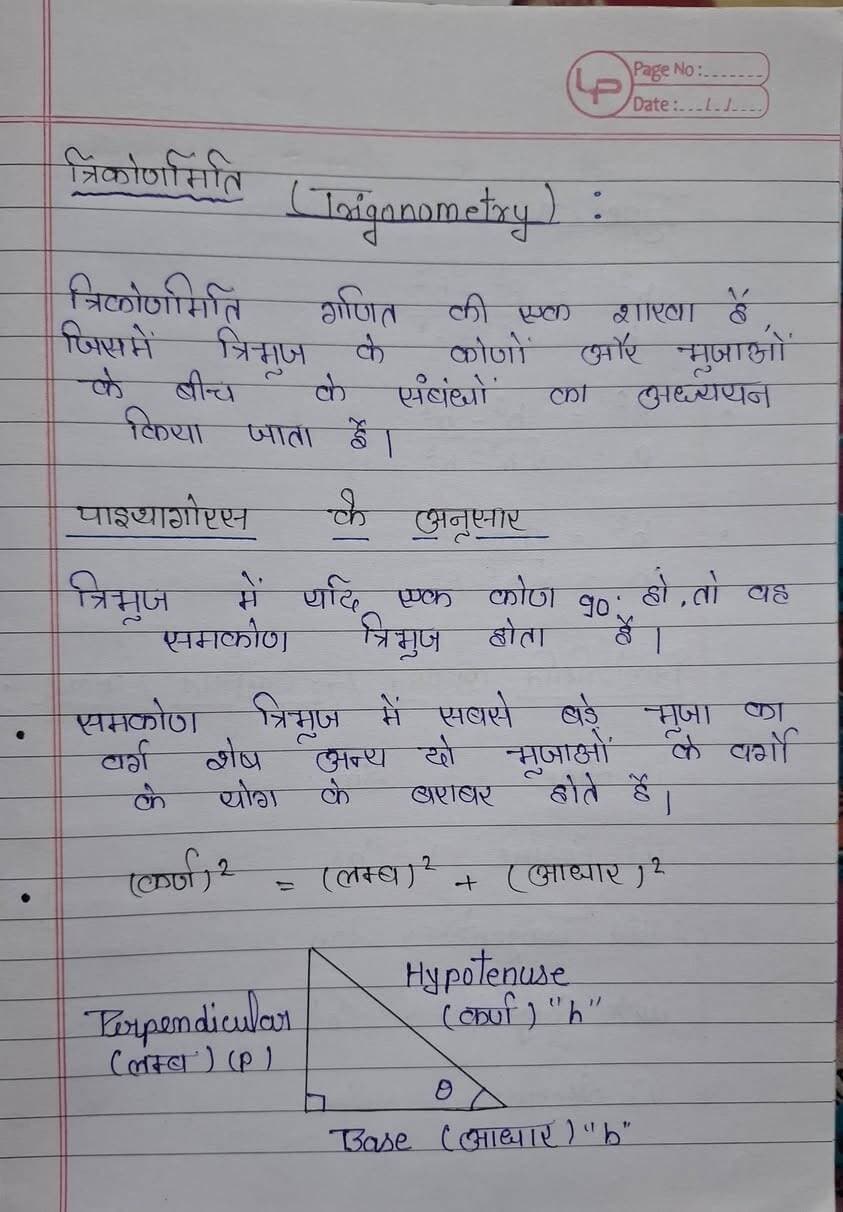 LP
Page No :.......
Date :..../../....
त्रिकोणमिति (Trigonometry) :
त्रिकोणमिति गणित की एक शाखा है,
जिसमें त्रिभुज के कोणों और भुजाओं
के बीच के संबंधों का अध्ययन
किया जाता है।
पाइथागोरस के अनुसार
त्रिभुज में यदि एक कोण 90° हो, तो वह
समकोण त्रिभुज होता है।
• समकोण त्रिभुज में सबसे बड़े भुजा का
वर्ग शेष अन्य दो भुजाओं के वर्गों
के योग के बराबर होते है।
• (कर्ण)² = (लम्ब)² + (आधार)²
Hypotenuse
(कर्ण) "h"
Perpendicular
(लम्ब) (P)
θ
Base (आधार) "b"